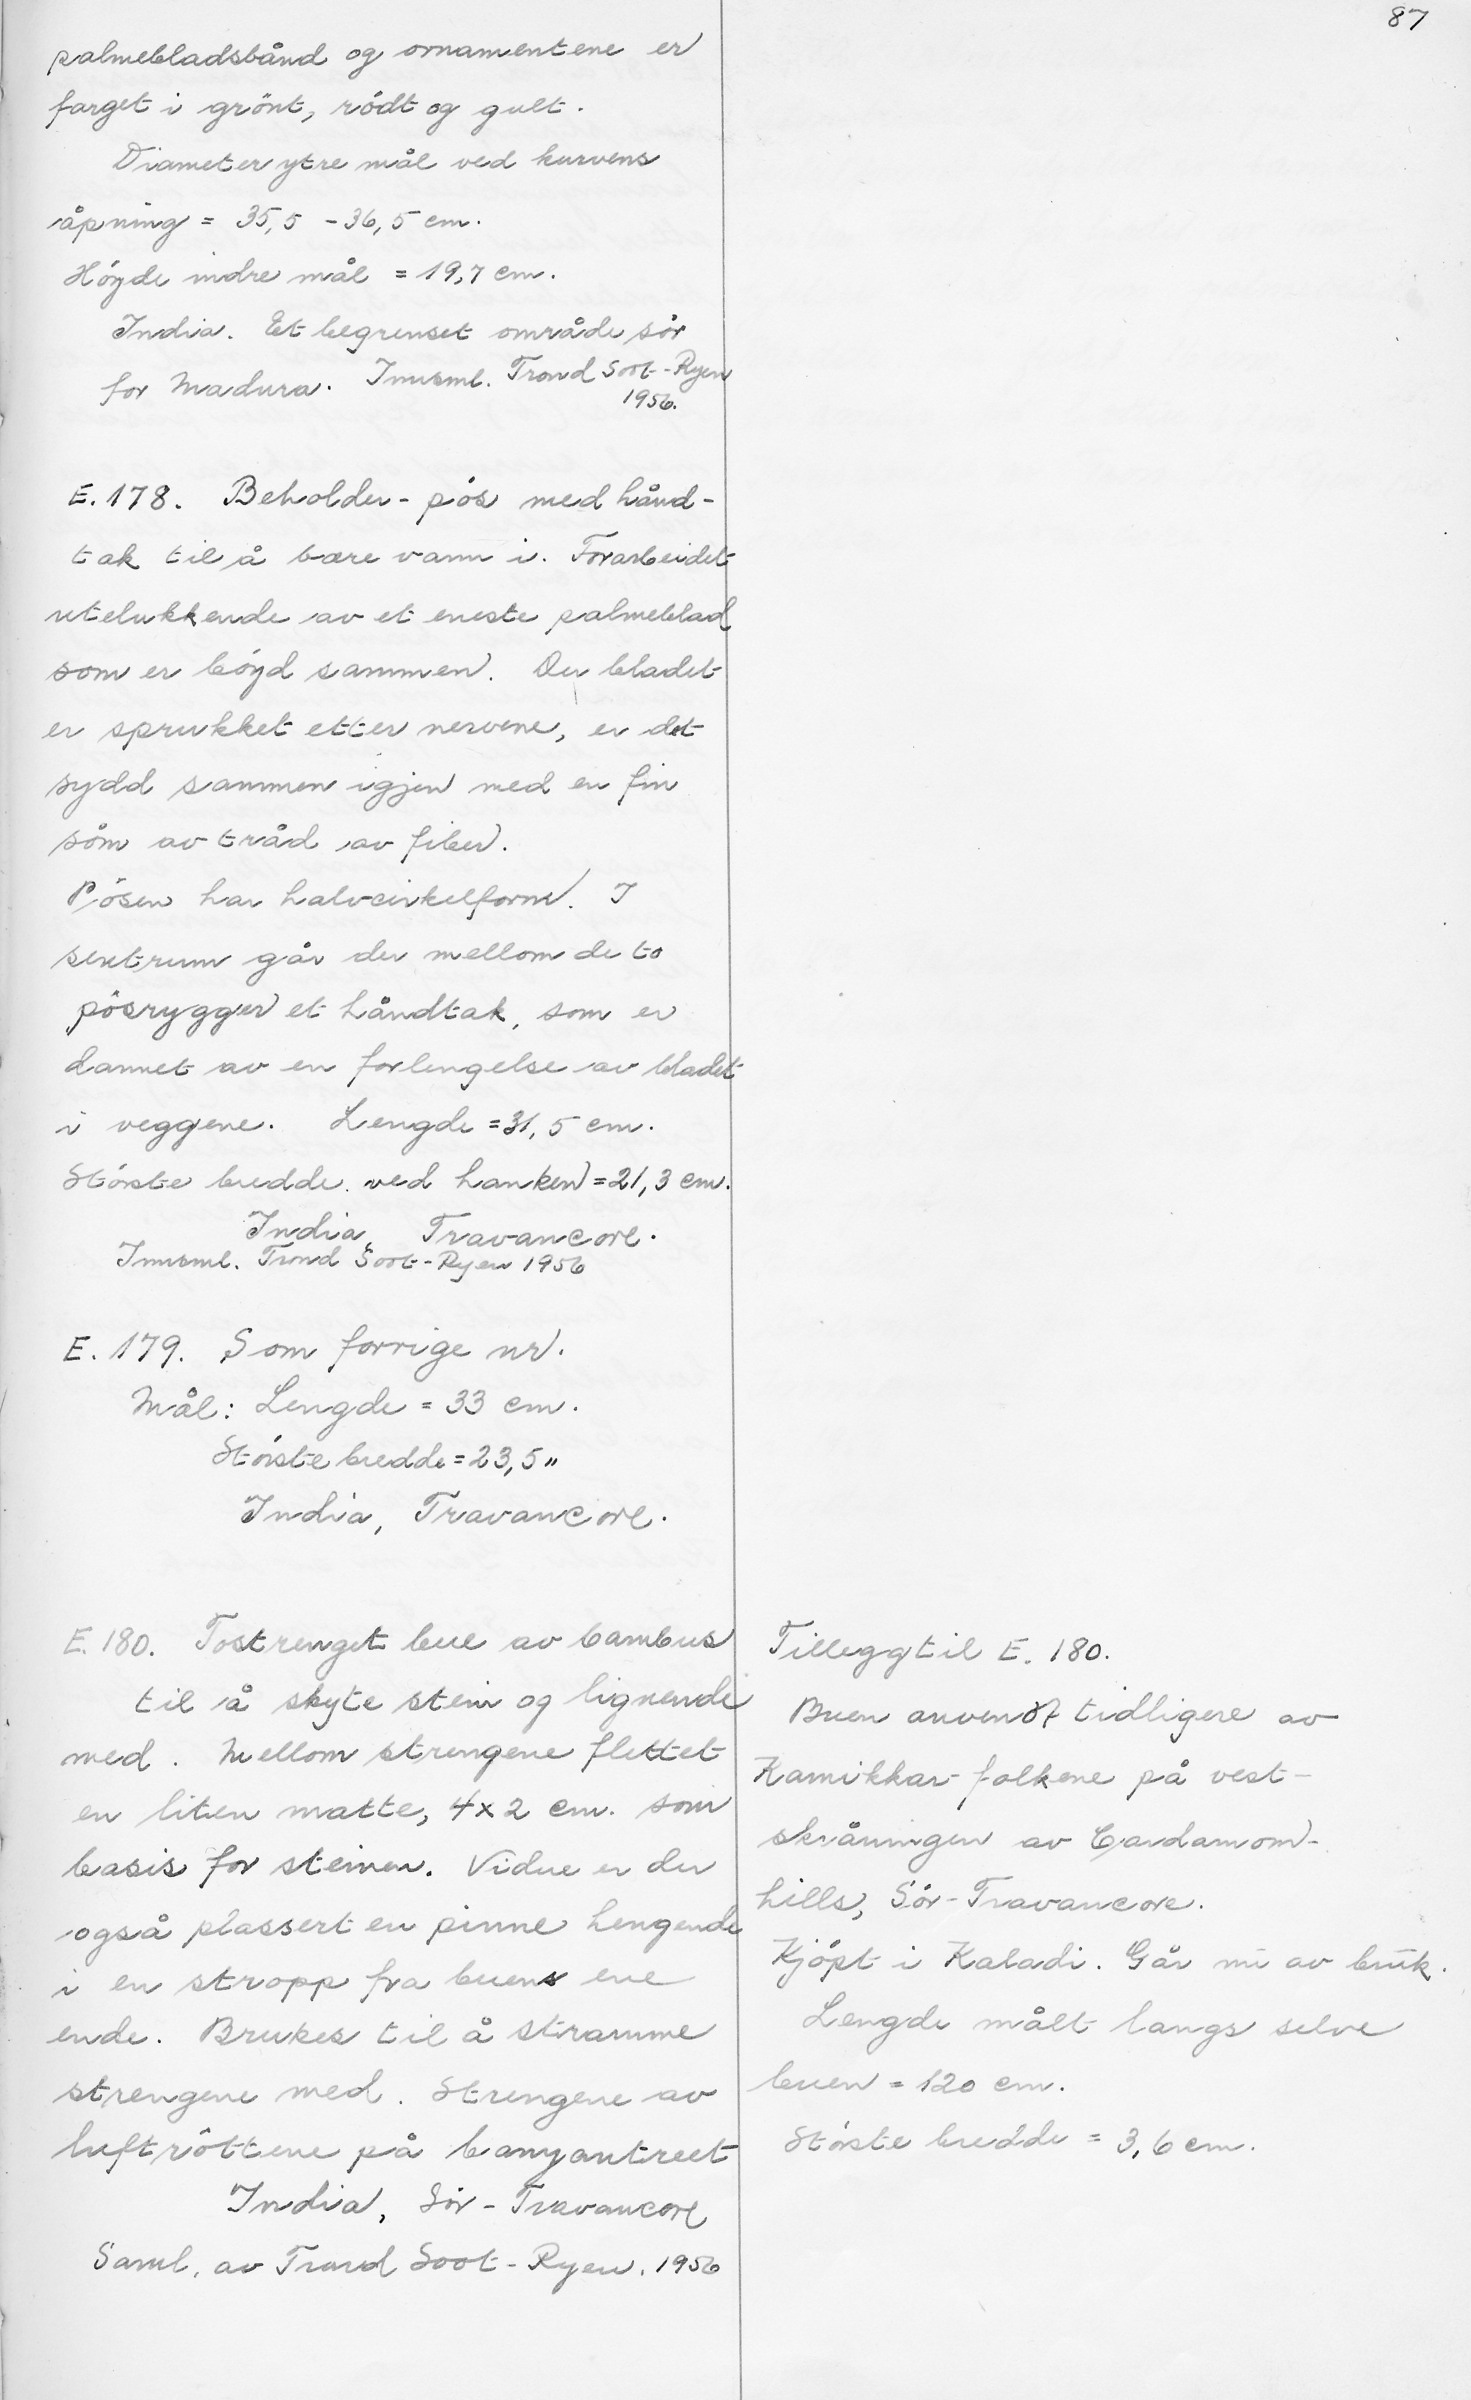 87
palmebladsbånd og ornamentene er
farget i grönt, rödt og gult.
Diameter ytre mål ved kurvens
åpning = 35,5 - 36,5 cm.
Höyde indre mål = 19,7 cm.
India. Et begrenset område sör
for Madura. Innsml. Trond Soot-Ryen
1956.
E. 178. Beholder - pös med hånd-
tak til å bære vann i. Forarbeidet
utelukkende av et eneste palmeblad
som er böyd sammen. Der bladet
er sprukket etter nervene, er det
sydd sammen igjen med en fin
söm av tråd av fiber.
Pösen har halvcirkelform. I
sentrum går der mellom de to
pösrygger et håndtak, som er
dannet av en forlengelse av bladet
i veggene. Lengde = 31,5 cm.
Störste bredde ved hanken = 21,3 cm.
India, Travancore.
Innsml. Trond Soot-Ryen 1956
E. 179. Som forrige nr.
Mål: Lengde = 33 cm.
Störste bredde = 23,5 "
India, Travancore.
E. 180. Tostrenget bue av bambus
til å skyte stein og lignende
med. Mellom strengene flettet
en liten matte, 4x2 cm. som
basis for steinen. Videre er der
også plassert en pinne hengende
i en stropp fra buens ene
ende. Brukes til å stramme
strengene med. Strengene av
luftröttene på banyantreet
India, Sör-Travancore
Saml. av Trond Soot-Ryen. 1956
Tillegg til E. 180.
Buen anvendt tidligere av
Kamikkar-folkene på vest-
skråningen av Cardamom-
hills, Sör-Travancore.
Kjöpt i Kaladi. Går nu av bruk.
Lengde målt langs selve
buen = 120 cm.
Störste bredde = 3,6 cm.